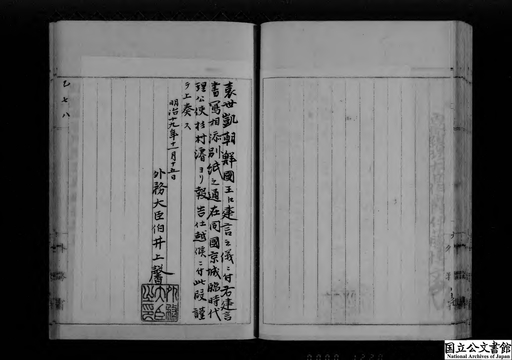 袁世凱朝鮮國王ニ建言之儀ニ付右建言
書寫相添別紙之通在同國京城臨時代
理公使杉村濬ヨリ報告仕越候ニ付此段謹
テ上奏ス
明治十九年十一月十五日
外務大臣伯井上馨
外務
大臣
之印
乙七八
国立公文書館
National Archives of Japan